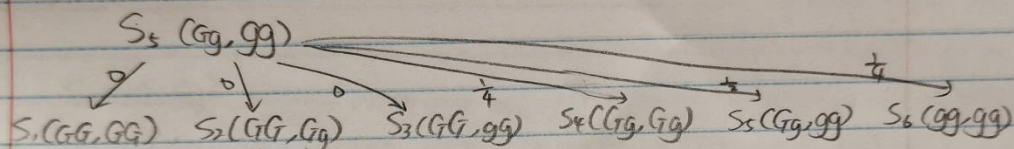 S5 (Gg, gg)
0 0 0 1/4 1/2 1/4
S1(GG, GG) S2(GG, Gg) S3(GG, gg) S4(Gg, Gg) S5(Gg, gg) S6(gg, gg)